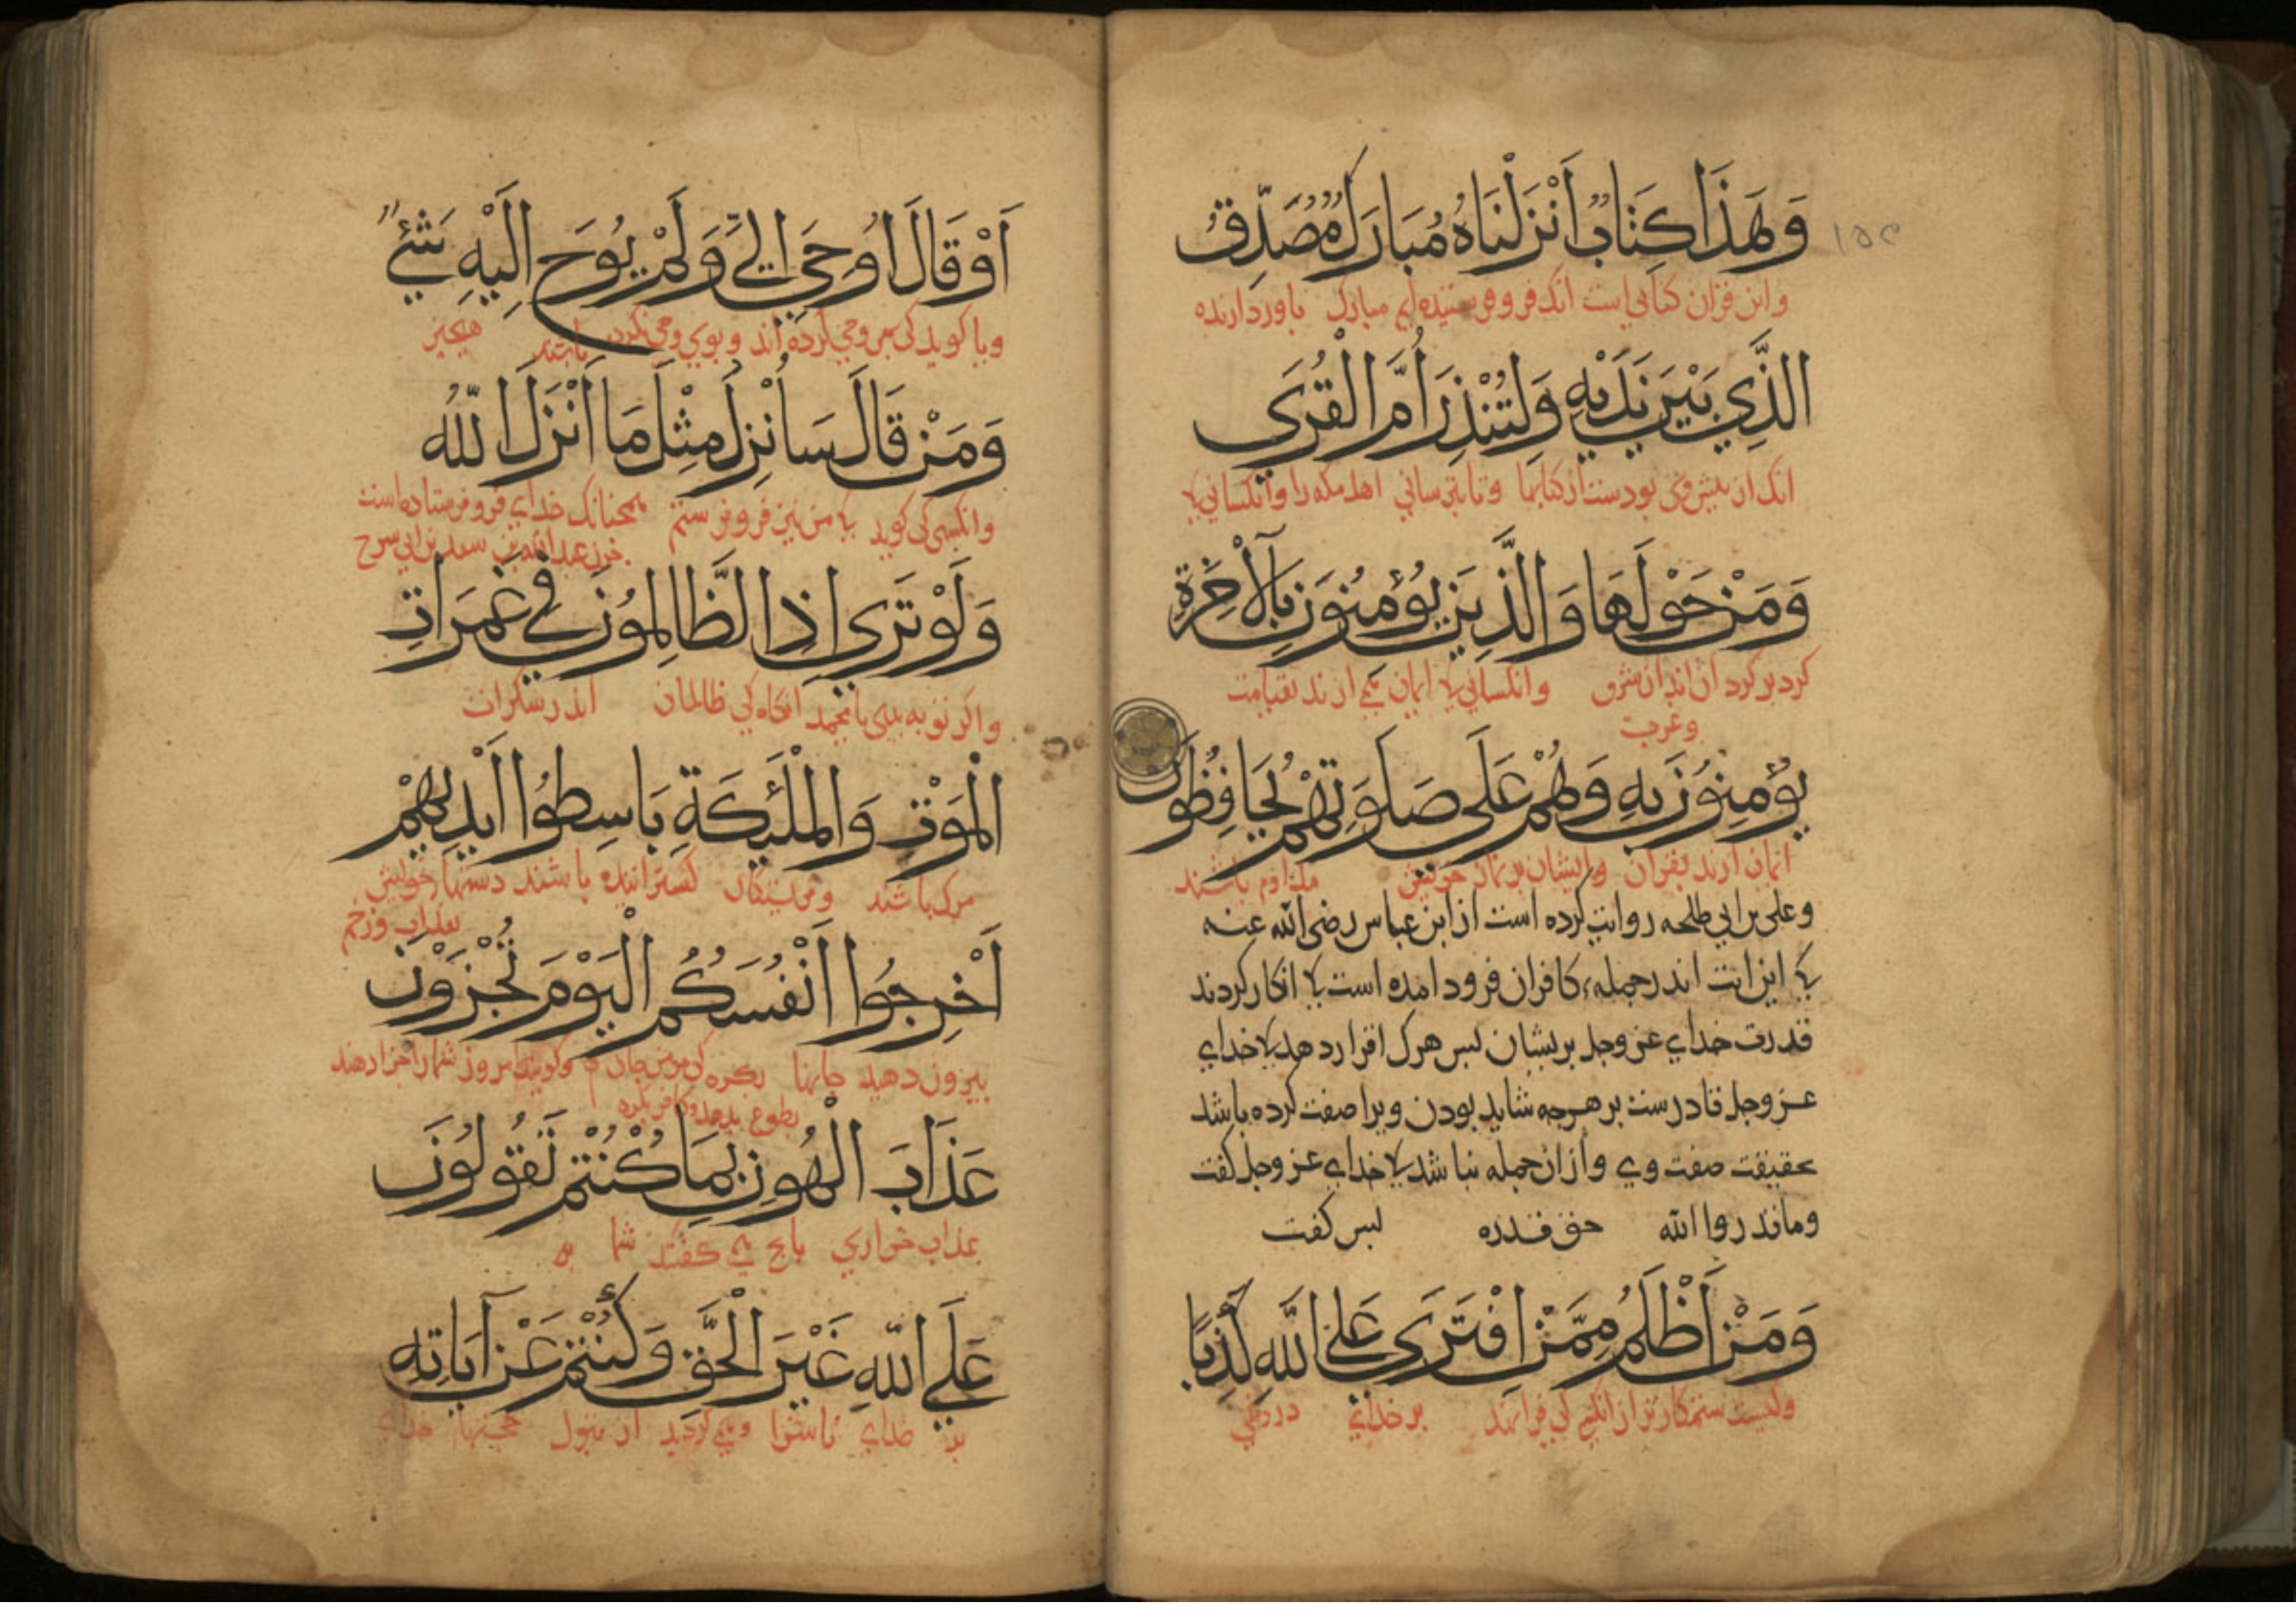 وَهَذَا كِتَابٌ أَنْزَلْنَاهُ مُبَارَكٌ مُصَدِّقُ
١٥٢
واین قران کتابی است انک فرو فرستیده ایم مبارک باوردارنده
الَّذِي بَيْنَ يَدَيْهِ وَلِتُنْذِرَ أُمَّ الْقُرَى
انک از پیش وی بودست از کتابها وتا بترسانی اهل مکه را وانکسانی کا
وَمَنْ حَوْلَهَا وَالَّذِينَ يُؤْمِنُونَ بِالْآخِرَةِ
کرد بر کرد ان اند از شرق وانکسانی کا ایمان می ارند بقیامت
وغرب
يُؤْمِنُونَ بِهِ وَهُمْ عَلَى صَلَوتِهِمْ يُحَافِظُونَ
ایمان ارند بقران وایشان بر نماز خویش مداوم باشند
وعلی بن ابی طلحه روایت کرده است از ابن عباس رضی الله عنه
کا این ایت اندر جمله کافران فرود امده است کا انکار کردند
قدرت خدای عز وجل بریشان لیس هرک اقرار دهد کا خدای
عز وجل قادرست بر هرجه شاید بودن ویرا صفت کرده باشد
بحقیقت صفت وی وازان جمله نباشد کا خدای عز وجل کفت
وماقدروا الله حق قدره لیس کفت
وَمَنْ أَظْلَمُ مِمَّنِ افْتَرَى عَلَى اللَّهِ كَذِبًا
وکیست ستمکارتر از انکسی کی فرا نهد بر خدای دروغی
أَوْ قَالَ أُوحِيَ إِلَيَّ وَلَمْ يُوحَ إِلَيْهِ شَيْءٌ
ویا کوید کی بمن وحی کرده اند وبوی وحی نکرده باشند هیچیز
وَمَنْ قَالَ سَأُنْزِلُ مِثْلَ مَا أَنْزَلَ اللّهُ
وانکسی کی کوید کا من نیز فرو فرستم همچنانک خدای فرو فرستاده است
عبد الله بن سعد بن ابی سرح
وَلَوْ تَرَي إِذِ الظَّالِمُونَ فِي غَمَرَاتِ
واکر تو به بینی یا محمد انکاه کی ظالمان اندر سکرات
الْمَوْتِ وَالْمَلَئِكَةِ بَاسِطُوا أَيْدِيهِمْ
مرک باشند وفریشتکان کسترانیده باشند دستهاء خویش
بعذاب وزخم
أَخْرِجُوا أَنْفُسَكُمُ الْيَوْمَ تُجْزَوْنَ
بیرون دهید جانها بکره کی مومن جان وکویند امروز شما را جزا دهند
بطوع بدهد وکافر بکره
عَذَابَ الْهُونِ بِمَا كُنْتُمْ تَقُولُونَ
عذاب خواری بانج می کفتید شما
عَلَي اللّهِ غَيْرَ الْحَقِّ وَكُنْتُمْ عَنْ آيَاتِهِ
بر خدای ناسزا ومی کردید از قبول حجتهاء خدای